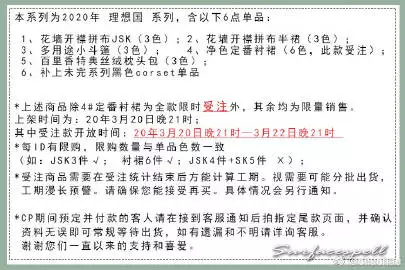 本系列为2020年 理想国 系列，含以下6点单品：
1、花墙开襟拼布JSK（3色）；2、花墙开襟拼布半裙（3色）；
3、多用途小斗篷（3色）； 4、净色定番衬裙（6色，此款受注）；
5、百里香特典丝绒枕头包（3色）；
6、补上未完系列黑色corset单品
*上述商品除4#定番衬裙为全款限时受注外，其余均为限量销售。
上架时间为：20年3月20日晚21时；
其中受注款开放时间：20年3月20日晚21时——3月22日晚21时
*每ID有限购，限购数量与单品色数一致
（如：JSK3件√； 衬裙6件√；JSK4件+SK5件 ×）；
*受注商品需要在受注统计结束后方能计算工期。视需要可能分批出货，
工期漫长预警。请确保您能接受再买。具体情况会另行通知。
*CP期间预定并付款的客人请在接到客服通知后拍指定尾款页面，并确认
资料无误即可常规等待出货，如有遗漏和不明请详询客服。
谢谢您们一直以来的支持和喜爱。
Surfacespell